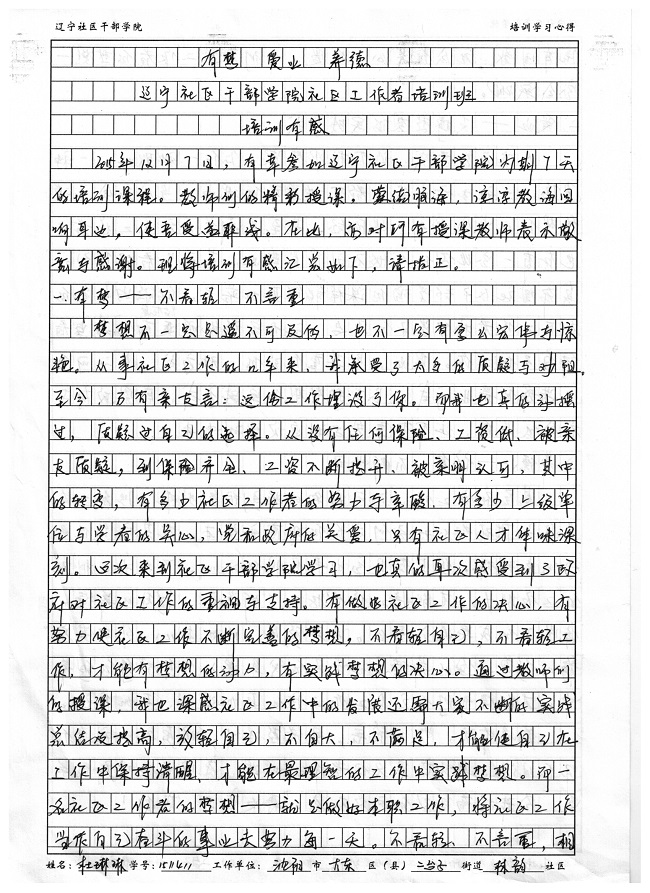 辽宁社区干部学院 培训学习心得
有梦 爱业 养德
辽宁社区干部学院社区工作者培训班
培训有感
2015年12月7日，有幸参加辽宁社区干部学院为期7天
的培训课程。教师们的精彩授课，谆谆教诲回
响耳边，使吾受益匪浅。在此，向对所有授课教师表示敬
意与感谢。现将培训有感汇总如下，请指正。
一.有梦——不看轻 不言重
梦想不一定是遥不可及的，也不一定有多么宏伟与惊
艳。从事社区工作的几年来，我承受了太多的质疑与劝阻。
至今，仍有亲友言：这份工作埋没了你。而我也真的动摇
过，质疑过自己的选择。从没有任何保险、工资低、被亲
友质疑，到保险齐全、工资不断提升、被亲朋认可，其中
的转变，有多少社区工作者的努力与辛酸，有多少上级单
位与学者的关心，党和政府的关爱，只有社区人才体味深
刻。这次来到社区干部学院学习，也真的再次感受到了政
府对社区工作的重视与支持。有做好社区工作的决心，有
努力使社区工作不断完善的梦想，不看轻自己，不看轻工
作，才能有梦想的动力，有实践梦想的决心。通过教师们
的授课，我也深感社区工作中的发展还需大家不断的实践
总结及提高，放轻自己，不自大，不满足，才能使自己在
工作中保持清醒，才能在最理智的工作中实践梦想。而一
名社区工作者的梦想——就是做好本职工作，将社区工作
当作自己奋斗的事业去努力每一天。不看轻，不言重，相
姓名：杜琳琳 学号：1511411 工作单位：沈阳 市 大东 区（县） 街道 社区